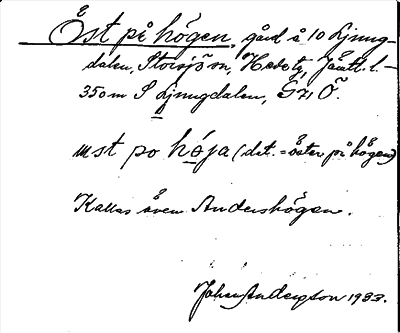 Öst på högen, gård å 10 Ljung-
dalen, Storsjö sn, Hede tg, Jämtl. l. –
350 m S Ljungdalen, G71 Ö.
ust po höja (det. = öster på högen)
Kallas även Andershögen.
Johan Andersson 1933.